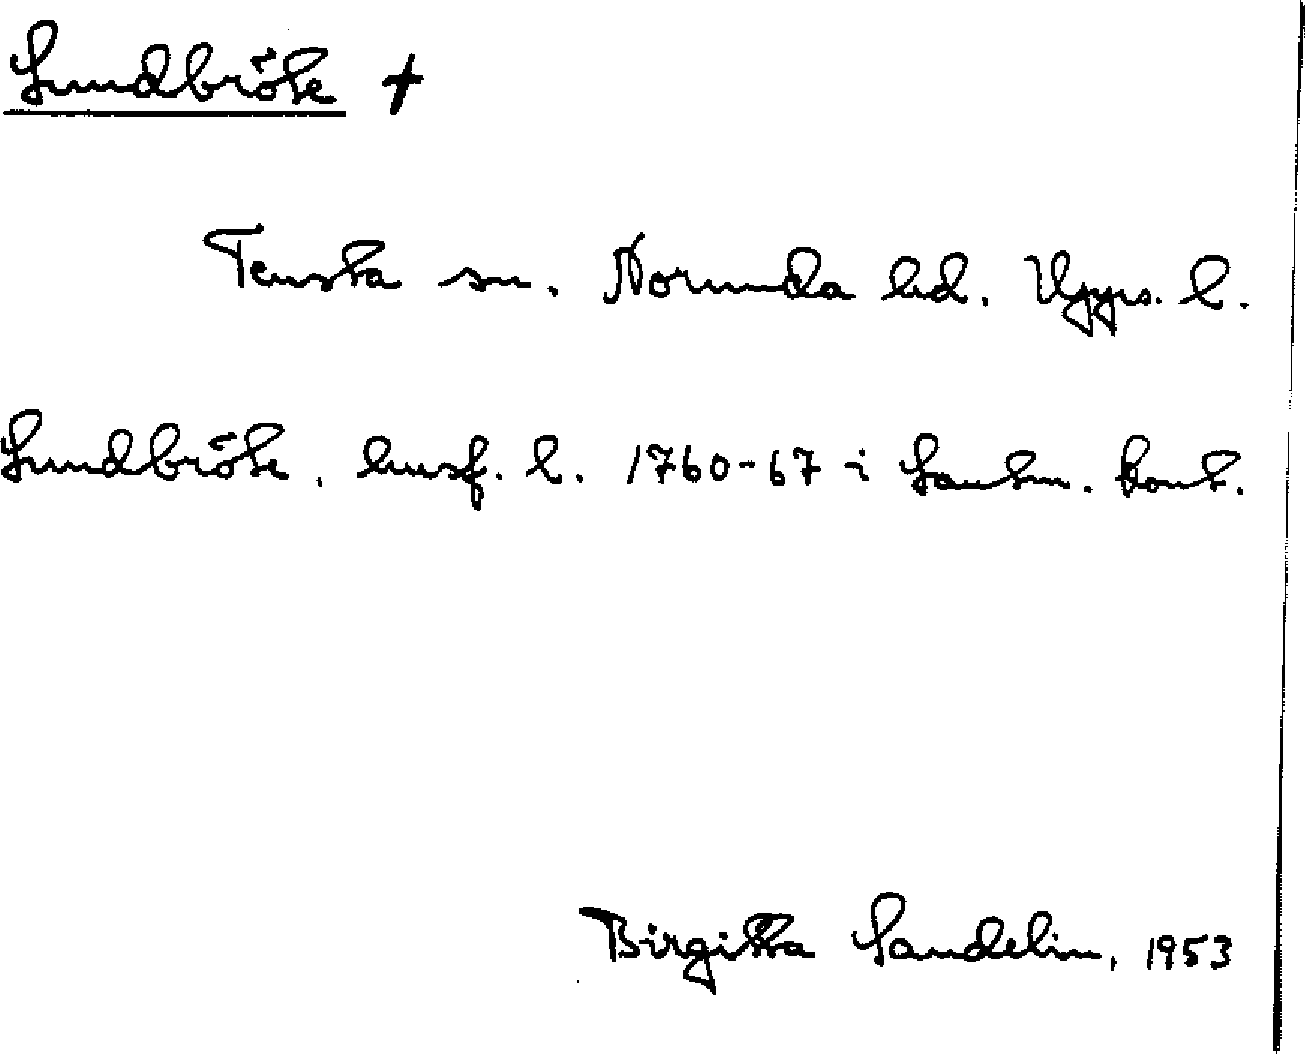 Sundbröte +
Tensta sn. Norunda hd. Upps. l.
Sundbröte. husf. l. 1760-67 i Lantm. kont.
Birgitta Sandelin, 1953